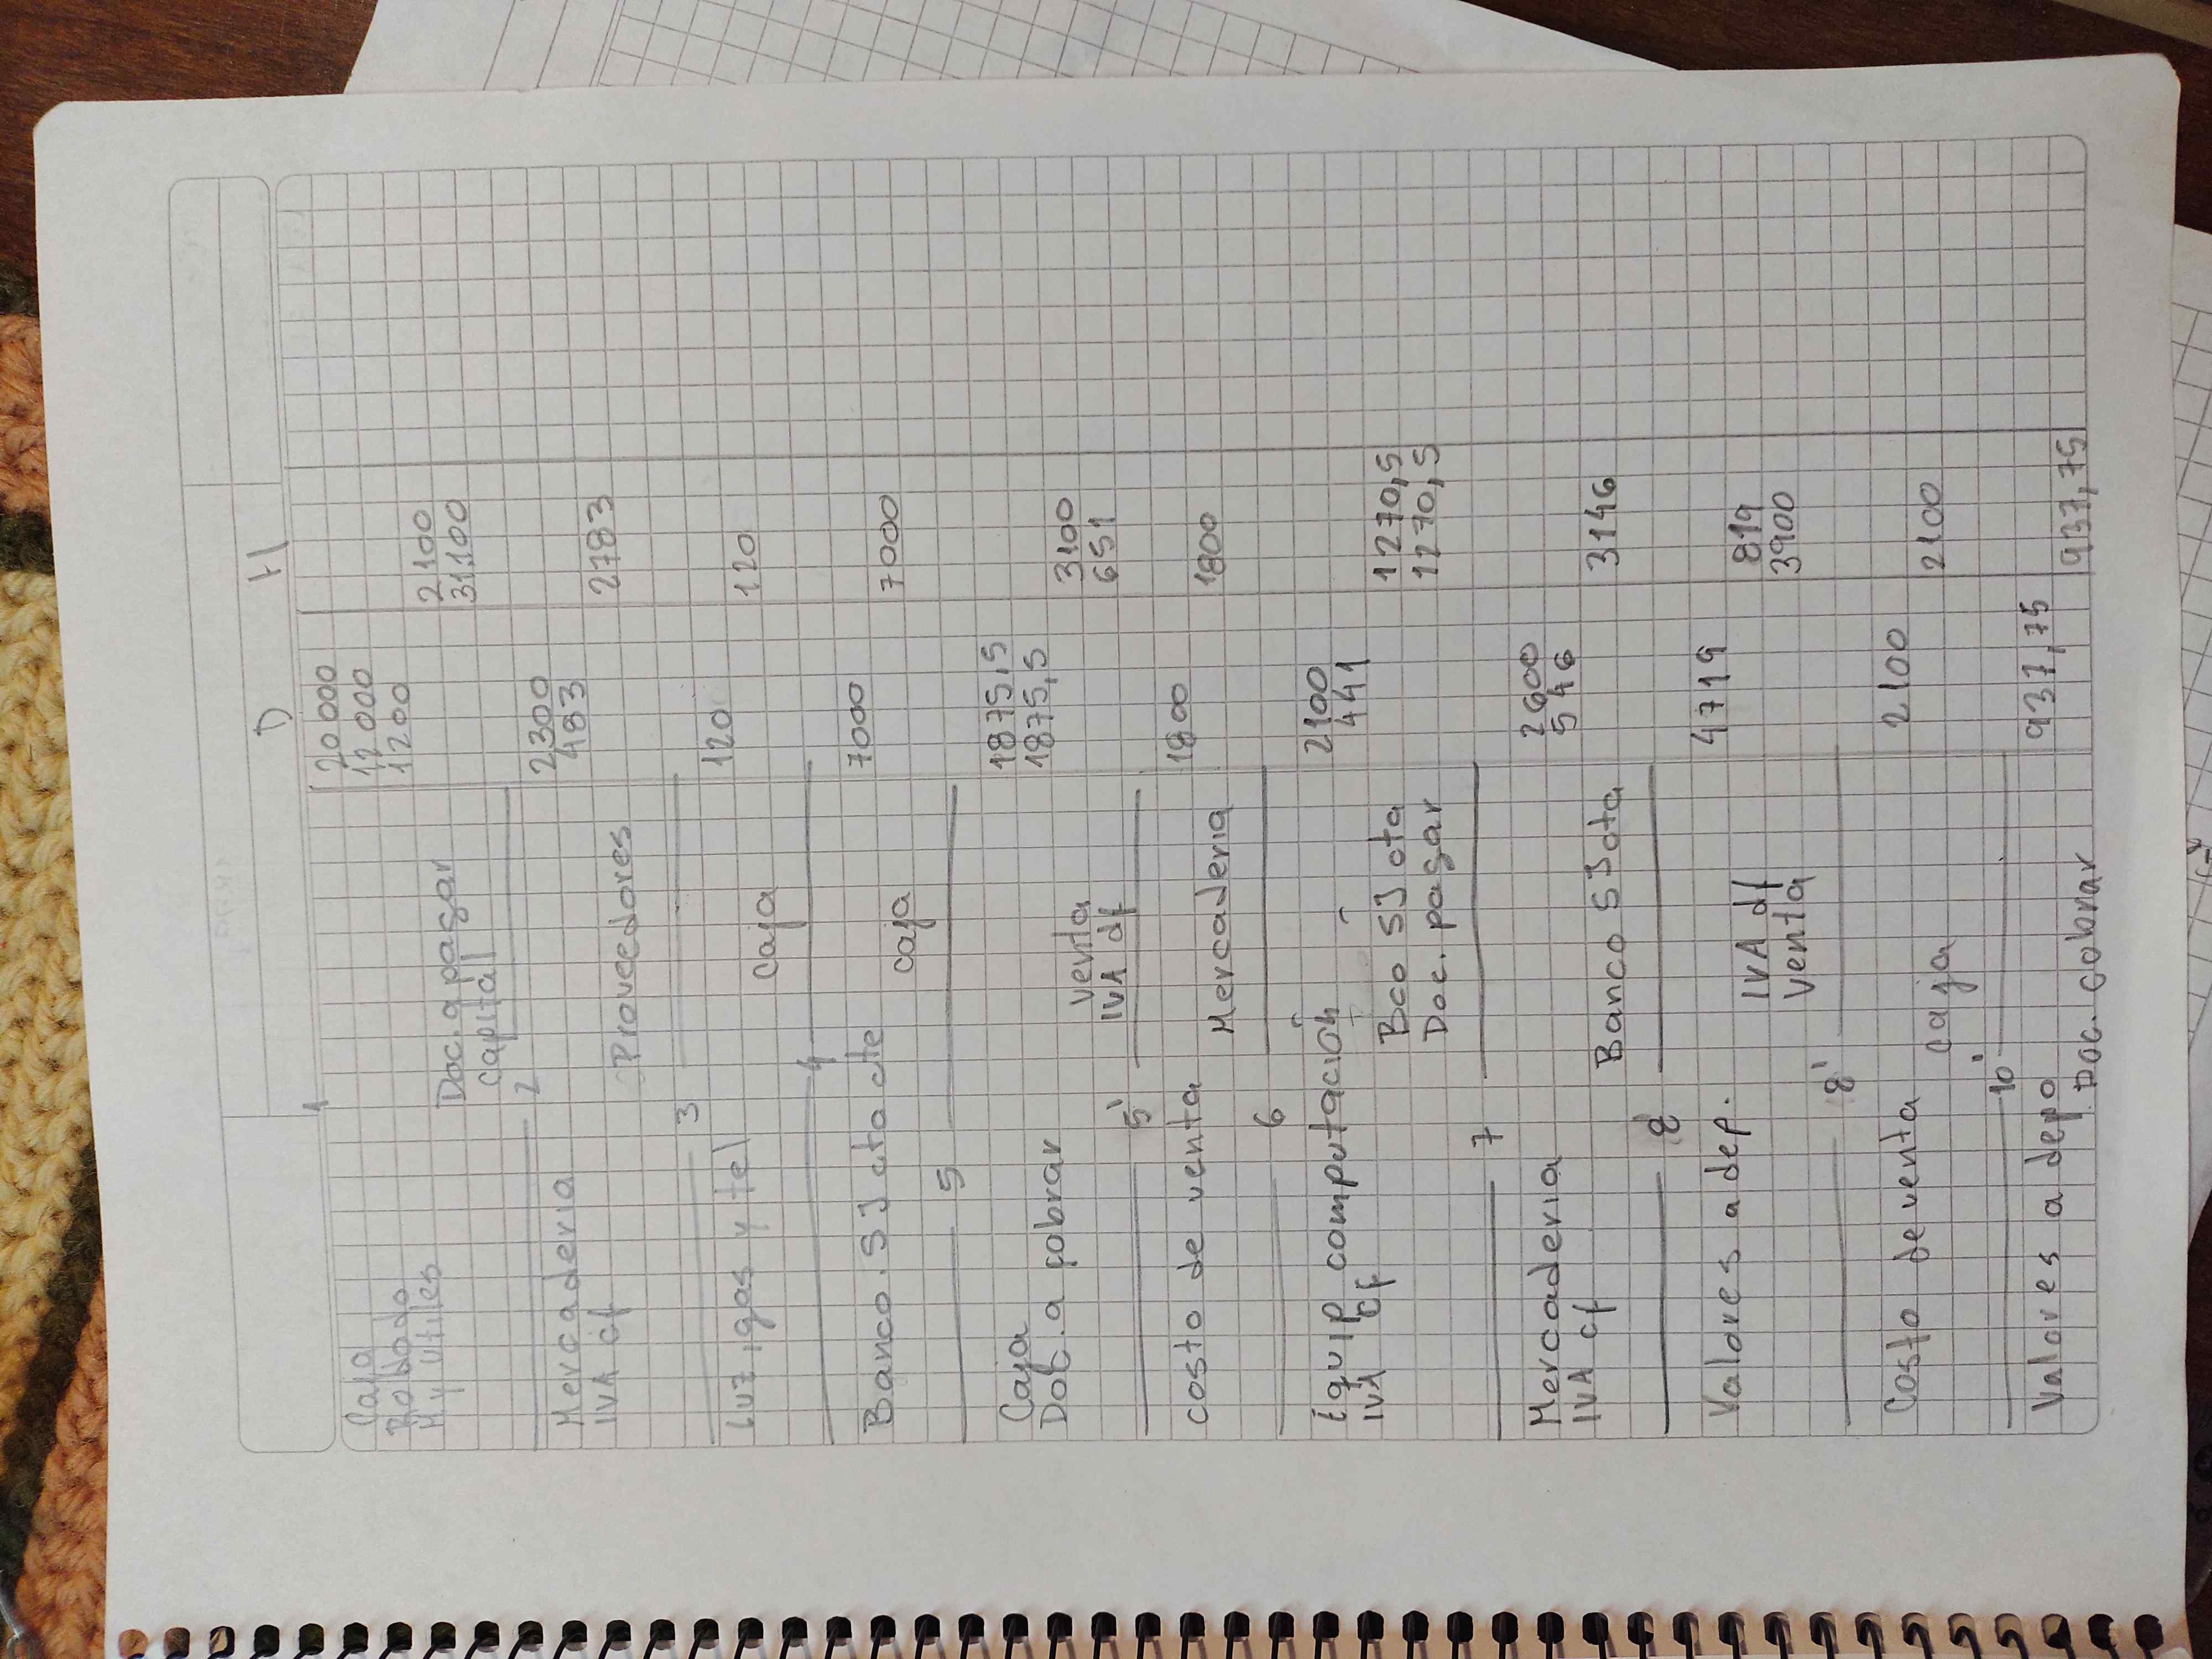 D H
1
Caja 20 000
Rodado 12 000
M y utiles 1200
Doc. a pagar 2 100
Capital 31.100
2
Mercaderia 2300
IVA cf 483
Proveedores 2783
3
luz, gas y tel 120
Caja 120
4
Banco. SJ cta cte 7000
caja 7000
5
Caja 1875,5
Doc. a cobrar 1875,5
venta 3100
IVA df 651
5'
costo de venta 1800
Mercaderia 1800
6
Equip computación 2100
IVA cf 441
Bco SJ cta 1270,5
Doc. pagar 1270,5
7
Mercaderia 2600
IVA cf 546
Banco SJ cta 3146
8
Valores a dep. 4719
IVA df 819
Venta 3900
8'
Costo de venta 2100
caja 2100
10'
Valores a depo 937,75
Doc. cobrar 937,75